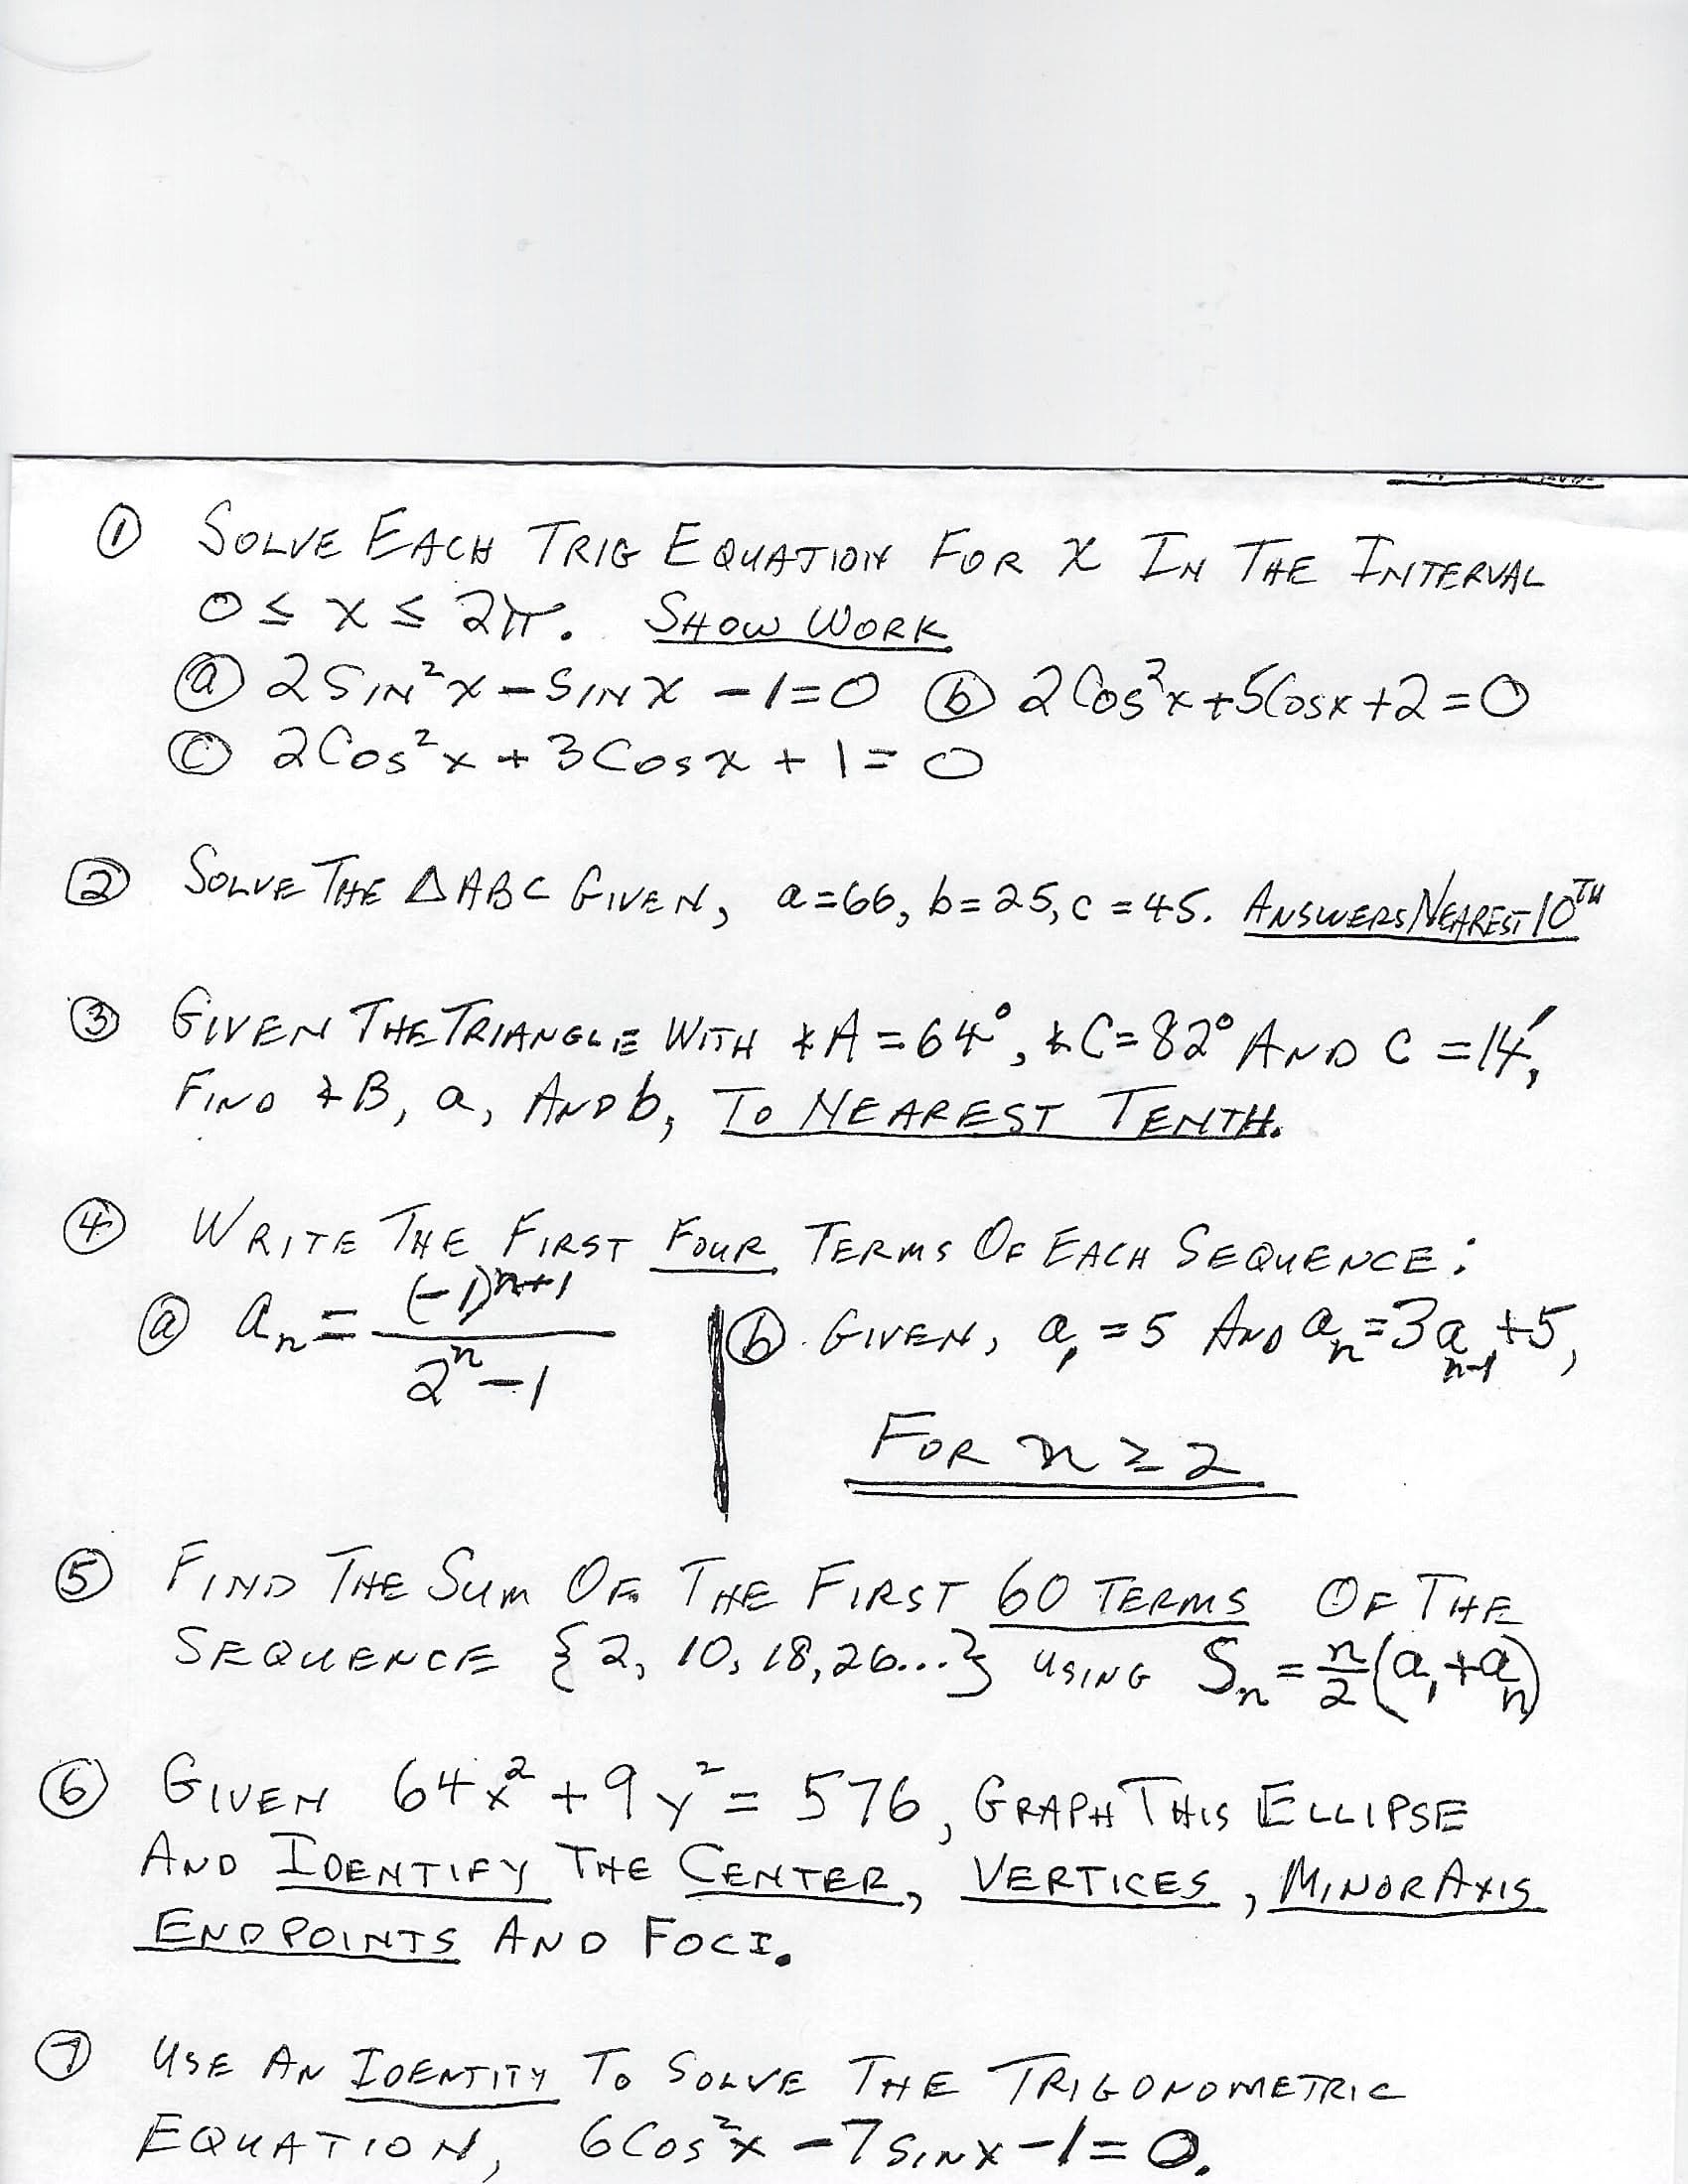 ① SOLVE EACH TRIG EQUATION FOR x IN THE INTERVAL
0 ≤ x ≤ 2π. SHOW WORK
ⓐ 2 SIN²x - SINX - 1 = 0 ⓑ 2 Cos²x + 5 Cosx + 2 = 0
ⓒ 2 Cos²x + 3 Cosx + 1 = 0
② SOLVE THE △ABC GIVEN, a = 66, b = 25, c = 45. ANSWERS NEAREST 10TH
③ GIVEN THE TRIANGLE WITH ∡A = 64°, ∡C = 82° AND C = 14',
FIND ∡B, a, AND b, TO NEAREST TENTH.
④ WRITE THE FIRST FOUR TERMS OF EACH SEQUENCE:
ⓐ aₙ = (-1)ⁿ⁺¹ / 2ⁿ - 1 ⓑ. GIVEN, a₁ = 5 AND aₙ = 3aₙ₋₁ + 5,
FOR n ≥ 2
⑤ FIND THE SUM OF THE FIRST 60 TERMS OF THE
SEQUENCE {2, 10, 18, 26...} USING Sₙ = n/2 (a₁ + aₙ)
⑥ GIVEN 64x² + 9y² = 576, GRAPH THIS ELLIPSE
AND IDENTIFY THE CENTER, VERTICES, MINOR AXIS
ENDPOINTS AND FOCI.
⑦ USE AN IDENTITY TO SOLVE THE TRIGONOMETRIC
EQUATION, 6 Cos²x - 7 SINX - 1 = 0.